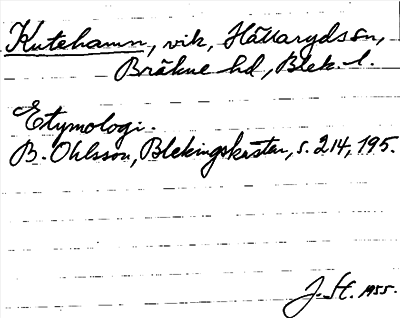 Kutehamn, vik, Hällarydsön,
Bräkne hd, Blek. l.
Etymologi.
B. Ohlsson, Blekingskusten, s. 214, 195.
J. St. 1955.